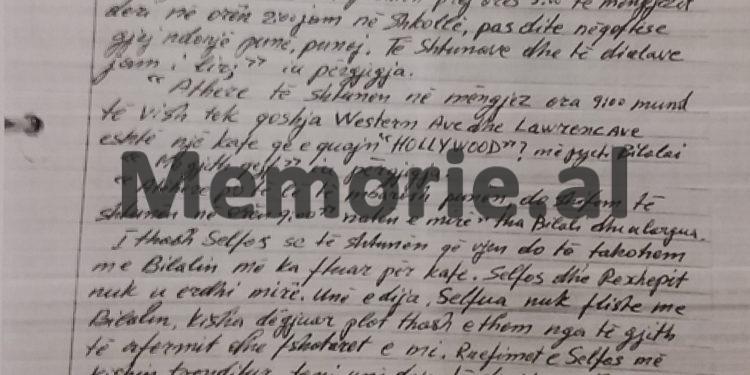 deri në orën 2:00 jam në Shkollë, pas dite nëqoftëse
gjej ndonjë punë, punoj. Të Shtunave dhe të dielave
jam i lirë" iu përgjigja.
"Athere të Shtunën në mëngjez ora 9:00 mund
të vish tek qoshja Western Ave dhe Lawrenc Ave
eshtë një kafe që e quajn "HOLLYWOOD"? më pyeti Bilali
"Me gjith qejf" iu përgjigja
Memorie.al
"Athere po të lë të mbarosh punën do shofem të
shtunën në orën 9:00" natën e mirë" tha Bilali dhe u largua.
I thash Selfos se të shtunën që vjen do të takohem
me Bilalin më ka ftuar për kafe. Selfos dhe Rexhepit
nuk u erdhi mirë. Unë e dija, Selfua nuk fliste me
Bilalin, kisha dëgjuar plot thash e them nga të gjith
të afermit dhe fshataret e mi. Rrefimet e Selfos më